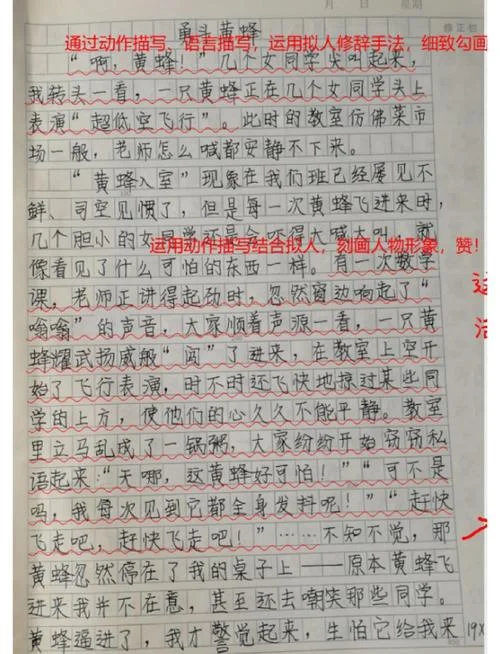 月 日 星期
修正栏
勇斗黄蜂
通过动作描写、语言描写，运用拟人修辞手法，细致勾画
“啊，黄蜂！”几个女同学尖叫起来，
我转头一看，一只黄蜂正在几个女同学头上
表演“超低空飞行”。此时的教室仿佛菜市
场一般，老师怎么喊都安静不下来。
“黄蜂入室”现象在我们班已经屡见不
鲜、司空见惯了，但是每一次黄蜂飞进来时，
几个胆小的女同学还是会吓得大喊大叫，就
运用动作描写结合拟人，刻画人物形象，赞！
像看见了什么可怕的东西一样。有一次数学
课，老师正讲得起劲时，忽然窗边响起了“
嗡嗡”的声音，大家顺着声源一看，一只黄
蜂耀武扬威般“闯”了进来，在教室上空开
始了飞行表演，时不时还飞快地掠过某些同
学的上方，使他们的心久久不能平静。教室
里立马乱成了一锅粥，大家纷纷开始窃窃私
语起来：“天哪，这黄蜂好可怕！”“可不是
吗，我每次见到它都全身发抖呢！”“赶快
飞走吧，赶快飞走吧！”……不知不觉，那
黄蜂忽然停在了我的桌子上——原本黄蜂飞
进来我并不在意，甚至还去嘲笑那些同学。
黄蜂逼近了，我才警觉起来，生怕它给我来